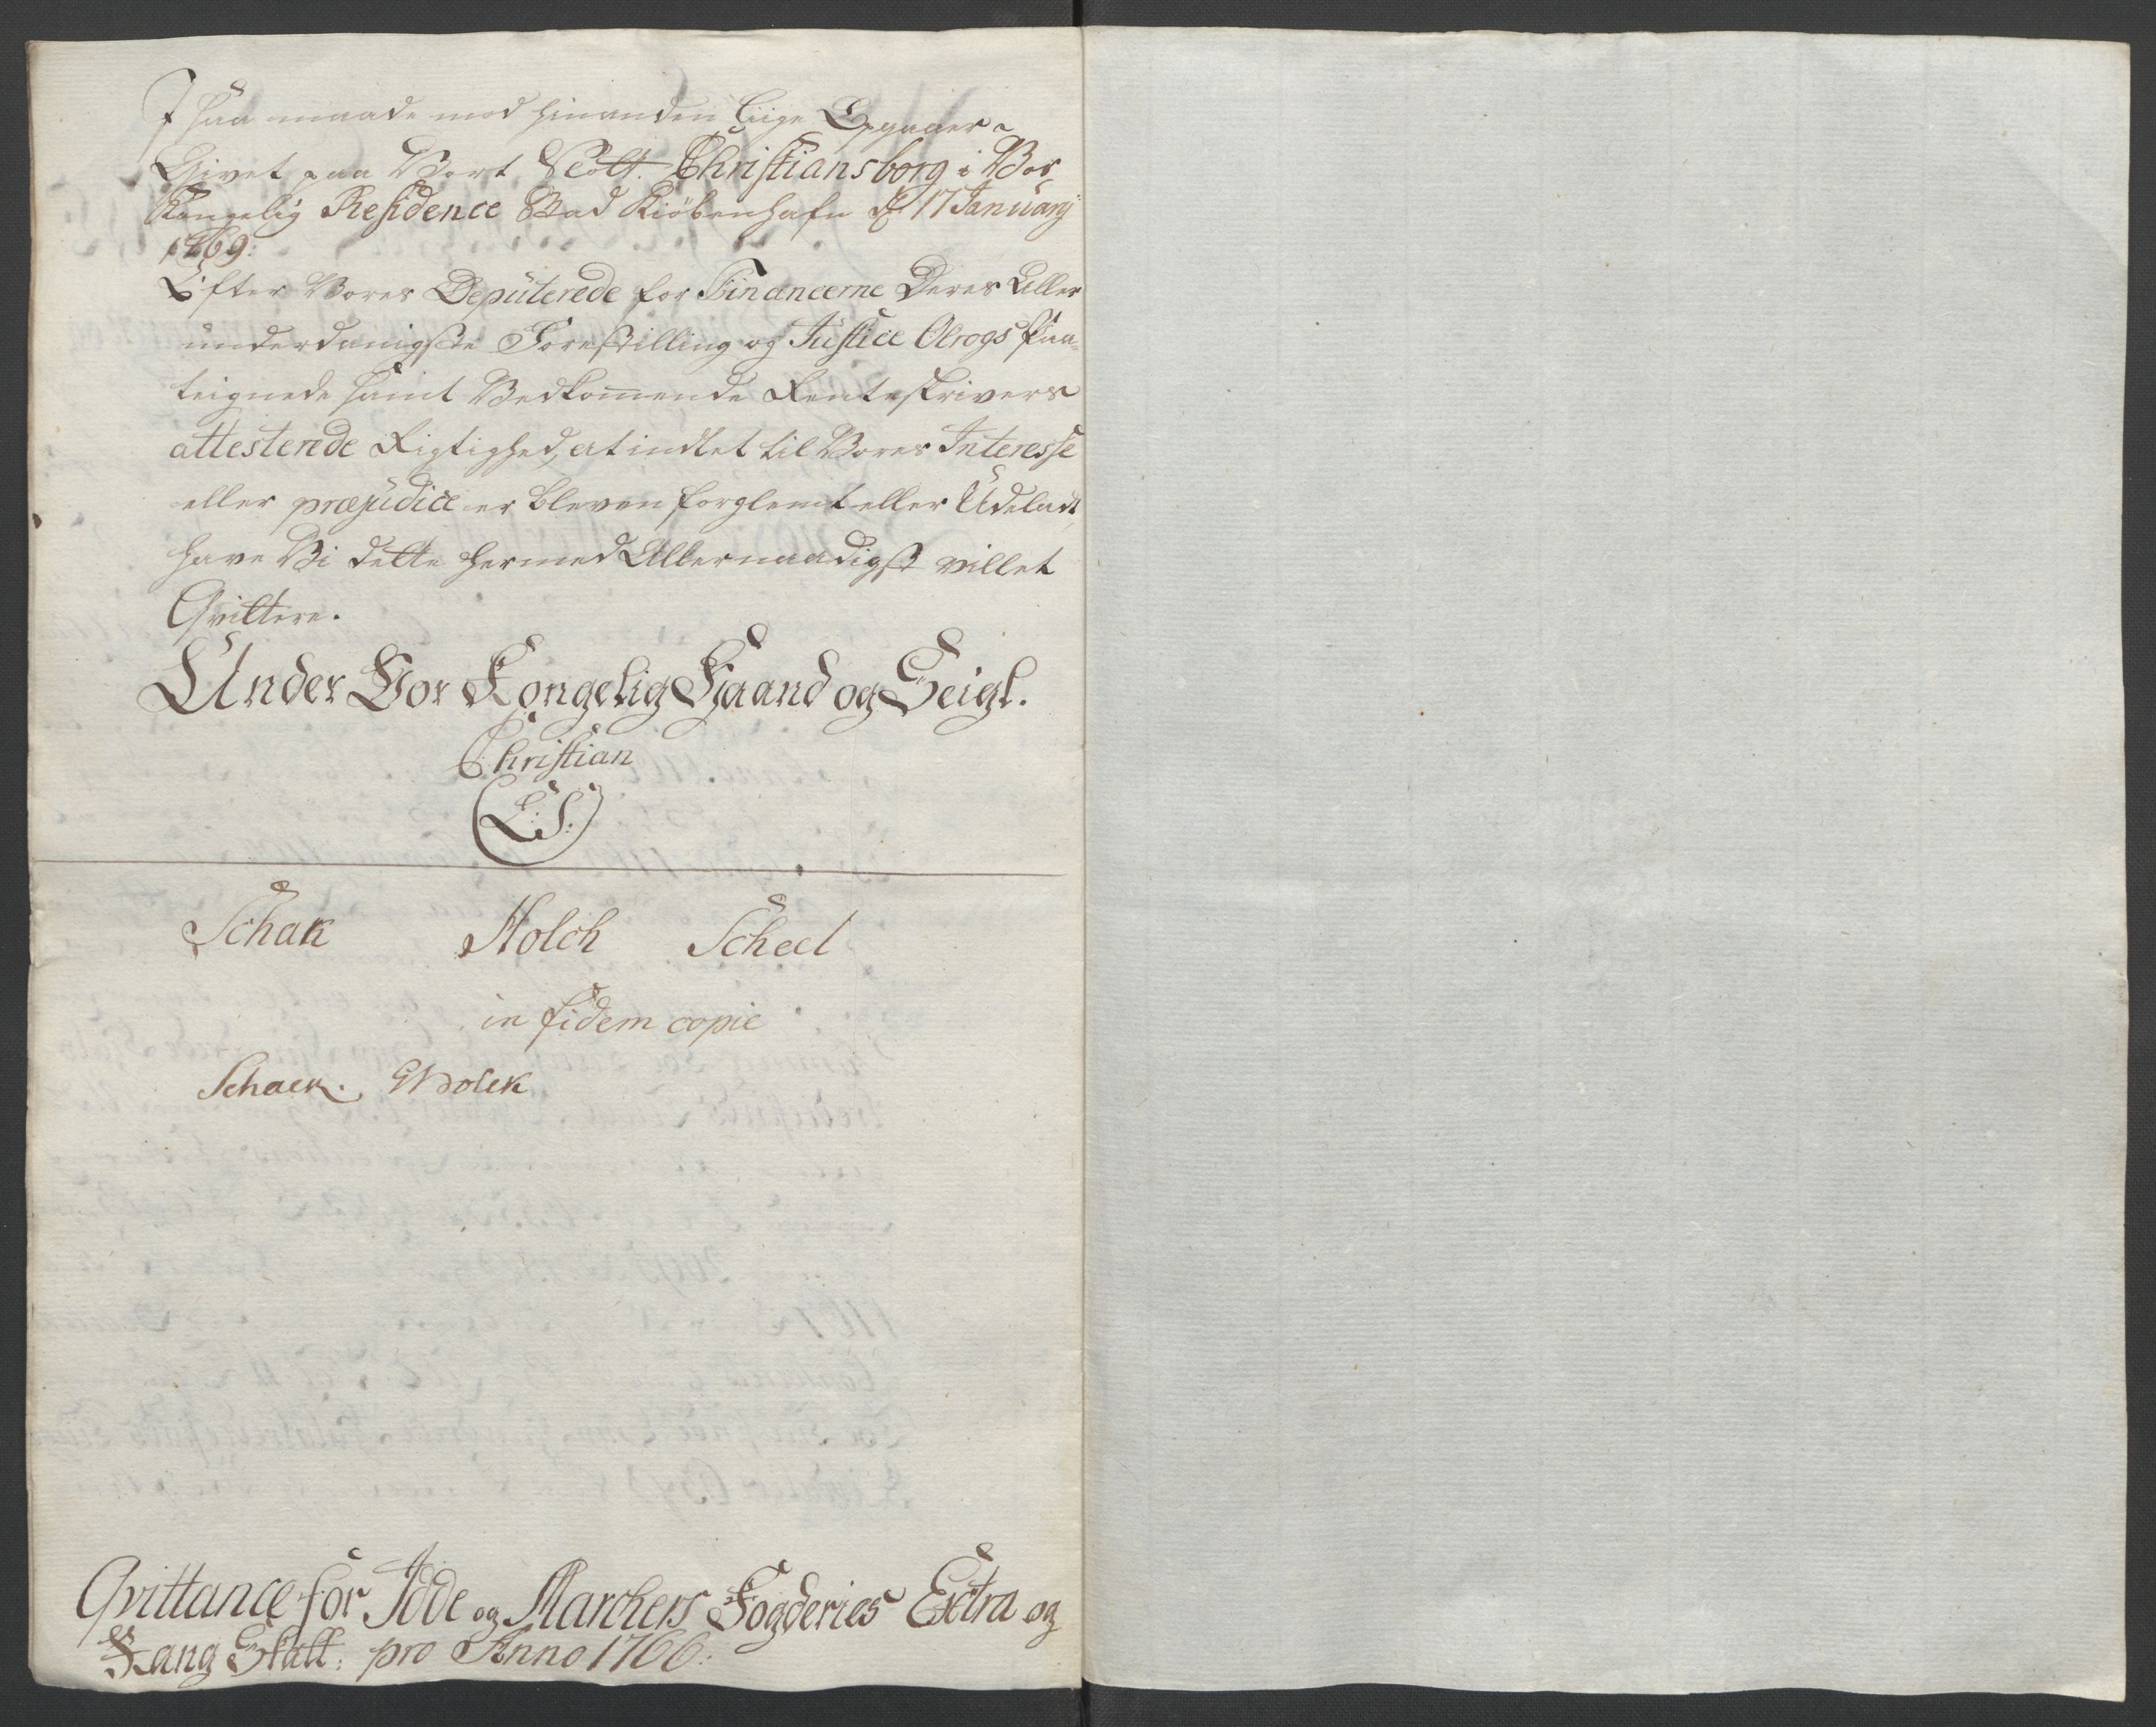 I saa maade mod hinanden liige Opgaaer
Givet paa Vort Slott Christiansborg i Vor
Kongelig Residence Stad Kiöbenhafn d 17 January
1769:
Efter Vores Deputerede for Financerne Deres Aller
underdanigste Forestilling og Justice Olrogs Paa-
teignede samt Vedkommende Renteskrivers
attesterede Rigtighed, at indtet til Vores Interesse
eller præjudice er bleven forglemt eller Udeladt,
have Vi dette hermed Allernaadigst villet
Qvittere.
Under Vor Kongelig Haand og Seigl.
Christian
(L:S:)
Schak Holch Scheel
in fidem copie
Schack.
Qvittance for Idde og Marchers Fogderies Extra og
Rang Skatt: pro Anno 1766: